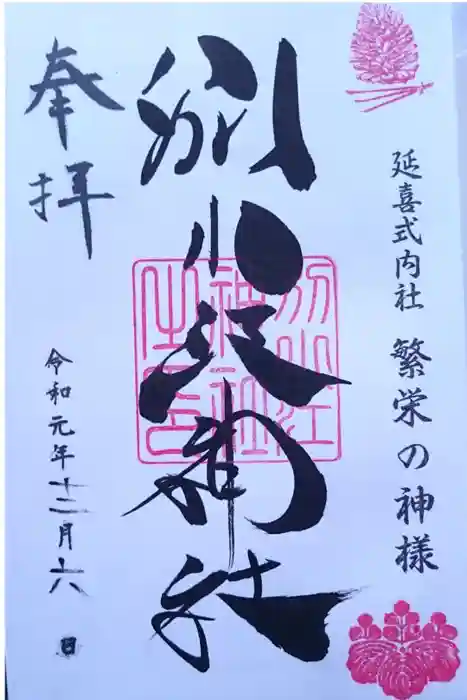 延喜式内社 繁栄の神様
別小江神社
別小江
神社
之印
奉拝
令和元年十二月六日